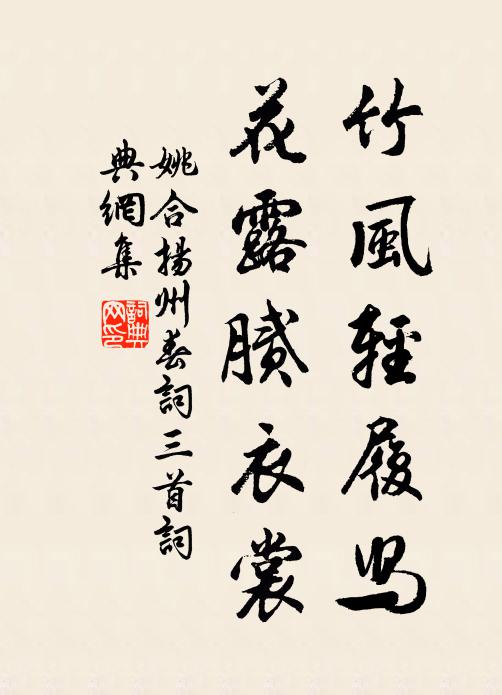 竹風輕履舄
花露膩衣裳
姚合揚州春詞三首詞
典網集
詞典網印